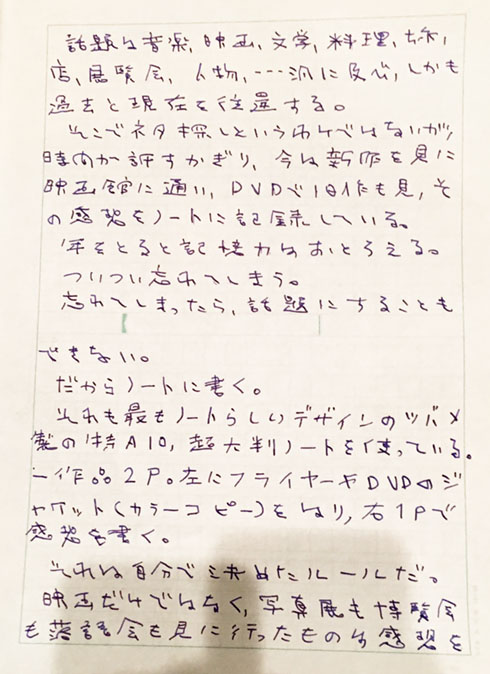 話題は音楽，映画，文学，料理，旅，
店，展覧会，人物，…汎に及び，しかも
過去と現在を往還する。
そこでネタ探しというわけではないが，
時間が許すかぎり，今は新作を見に
映画館に通い，DVDで旧作も見，そ
の感想をノートに記録している。
年をとると記憶力はおとろえる。
ついつい忘れてしまう。
忘れてしまったら，話題にすることも
できない。
だからノートに書く。
それも最もノートらしいデザインのツバメ
製の特A10，超大判ノートを使っている。
一作品2P。左にフライヤーやDVDのジ
ャケット（カラーコピー）をはり，右1Pで
感想を書く。
それは自分で決めたルールだ。
映画だけではなく，写真展も博覧会
も落語会も見に行ったものは感想を